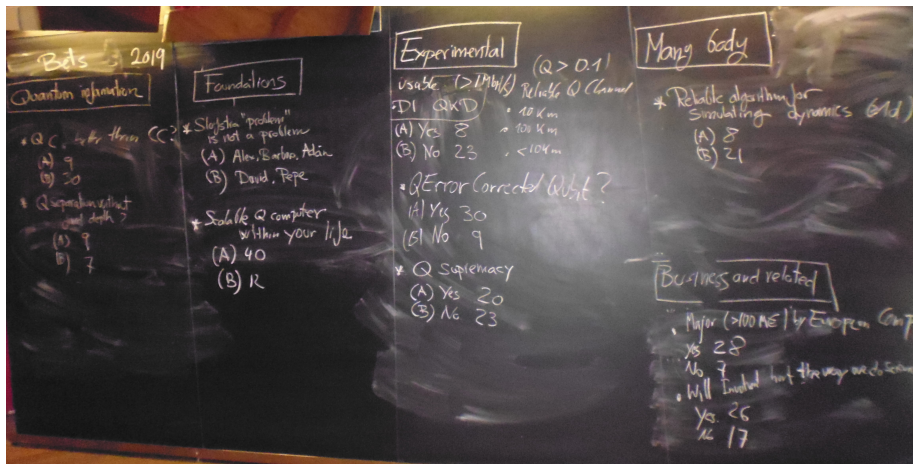 Bets 2019
Quantum information
* QC better than CC?
(A) 9
(B) 30
* Q separation without
depth?
(A) 9
(B) 7
Foundations
* "problem"
is not a problem
(A) Alex, Barbara, Adán
(B) David, Pepe
* Scalable Q computer
within your life
(A) 40
(B)
Experimental
(Q > 0.1)
usable (>1Mbit/s) Reliable Q Channel
DI QKD
(A) Yes 8
(B) No 23
• 10 Km
• 100 Km
• <10 Km
* QError Corrected Qubit?
(A) Yes 30
(B) No 9
* Q supremacy
(A) Yes 20
(B) No 23
Many body
* Reliable algorithm for
simulating dynamics
(A) 8
(B) 21
Business and related
• Major (>100 M€) by European Comp
Yes 28
No 7
• Will the way we do Science
Yes 26
No 17